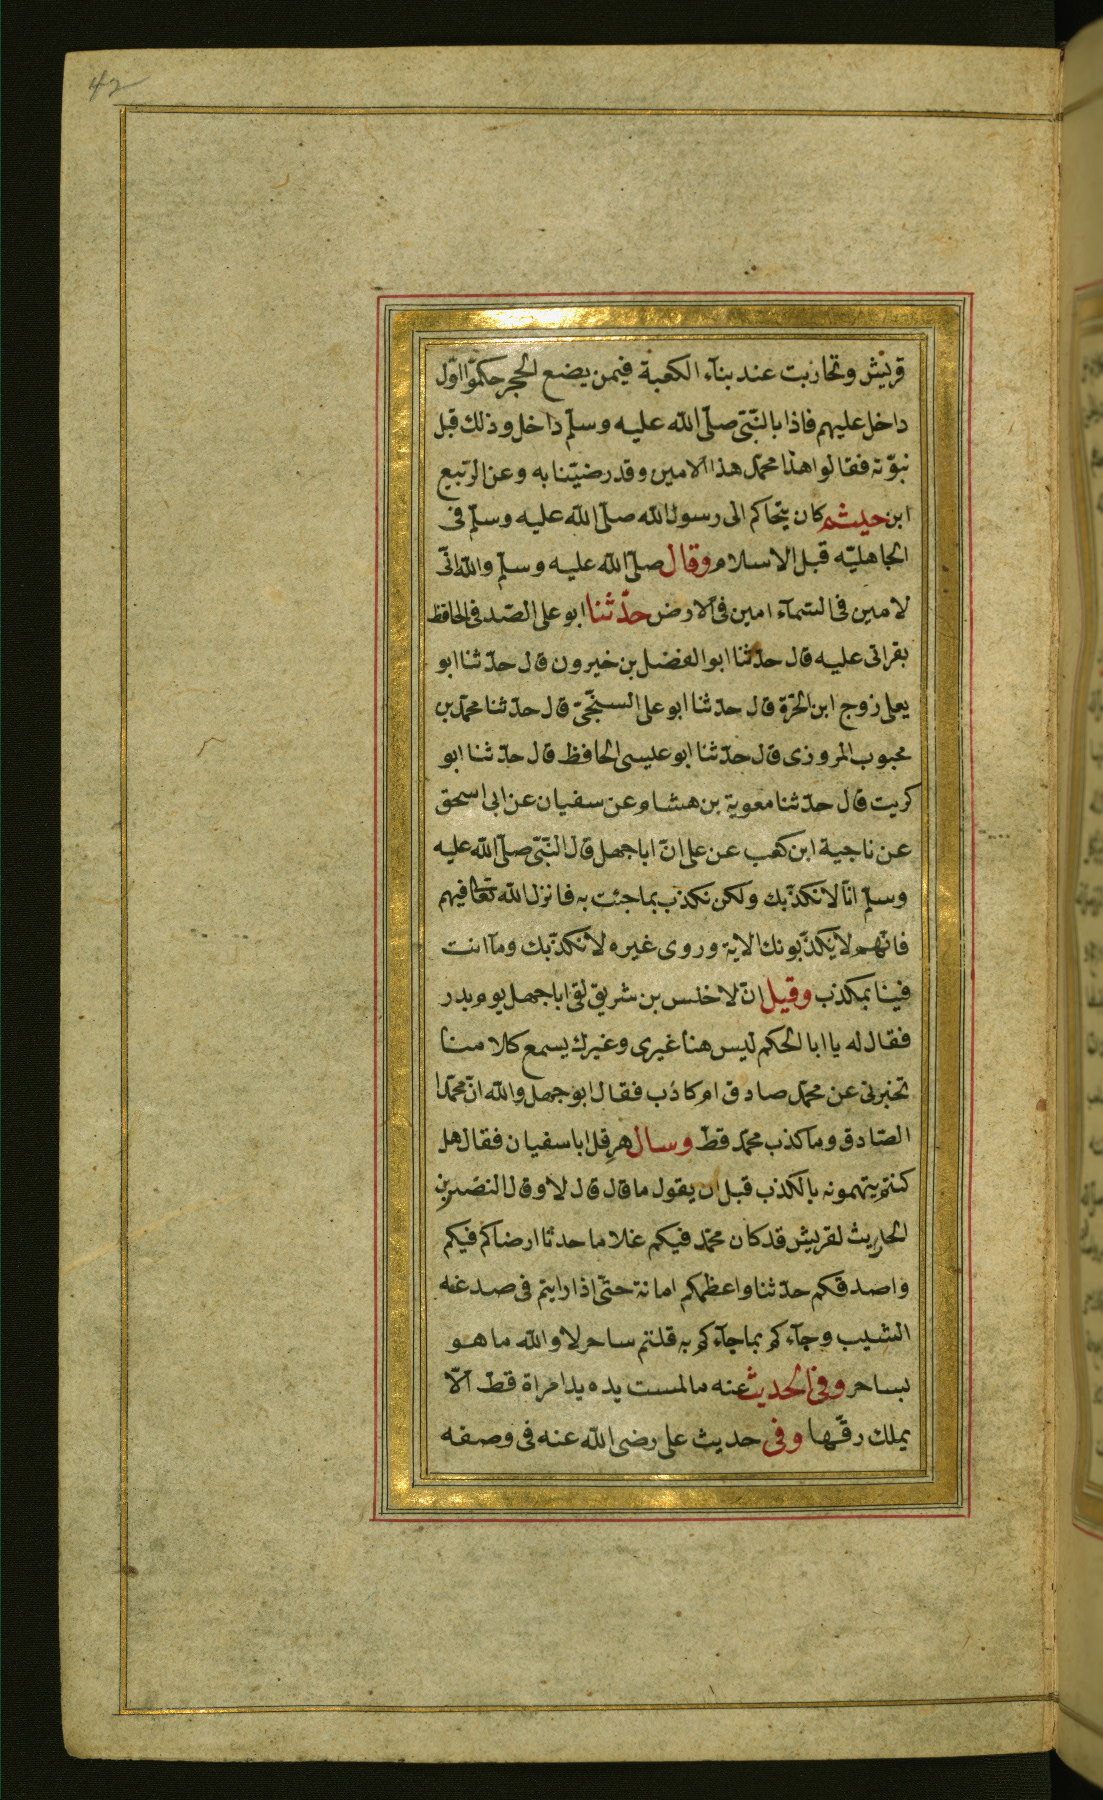 42
قريش وتحازبت عند بناء الكعبة فيمن يضع الحجر حكموا اوّل
داخل عليهم فاذا بالنّبىّ صلّى اللّه عليه وسلّم داخل وذلك قبل
نبوّته فقالوا هذا محمّد هذا الامين وقد رضيّنا به وعن الرّبيع
ابن خيثم كان يتحاكم الى رسول اللّه صلّى اللّه عليه وسلّم فى
الجاهليّه قبل الاسلام وقال صلّى اللّه عليه وسلّم واللّه انّى
لامين فى السّمآء امين فى الارض حدّثنا ابو على الصّدفى الحافظ
بقراتى عليه قال حدّثنا ابو الفضل بن خيرون قال حدّثنا ابو
يعلى زوج ابن الحرّة قال حدّثنا ابو على السنجّىّ قال حدّثنا محمّد بن
محبوب المروزى قال حدّثنا ابو عيسى الحافظ قال حدّثنا ابو
كريت قال حدّثنا معوية بن هشام عن سفيان عن ابى اسحق
عن ناجية ابن كعب عن على انّ اباجهل قال النّبىّ صلّى اللّه عليه
وسلّم انّا لا نكذّبك ولكن نكذب بما جئت به فانزل اللّه تعالى فيهم
فانّهم لا يكذّبونك الاية وروى غيره لا نكذّبك وما انت
فينا بمكذب وقيل انّ لاخنس بن شريق لقى اباجهل يوم بدر
فقال له يا ابا الحكم ليس هنا غيرى وغيرك يسمع كلامنا
تخبرنى عن محمّد صادق ام كاذب فقال ابوجهل واللّه انّ محمّدا
الصّادق وما كذب محمّد قطّ وسال هرقل اباسفيان فقال هل
كنتم تتهمونه بالكذب قبل ان يقول ما قال قال لا وقال النضر بن
الحاريث لقريش قد كان محمّد فيكم غلاما حدثا ارضاكم فيكم
واصدقكم حدّثنا واعظمكم امانة حتّى اذا رايتم فى صدغه
الشيب وجآءكم بما جآءكم به قلتم ساحر لا واللّه ما هو
بساحر وفى الحديث عنه ما لمست يده يد امراة قطّ الّا
يملك رقّها وفى حديث على رضى اللّه عنه فى وصفه